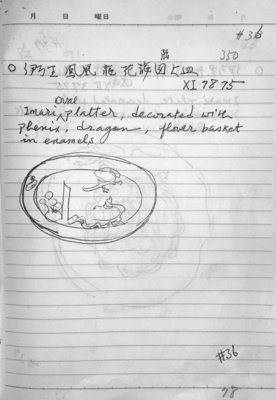 月 日 曜日
#36
350
○伊万里鳳凰龍花籠図大皿
XI 7875
Oval
Imari ^ platter, decorated with
phenix, dragon, flower basket
in enamels
#36
78